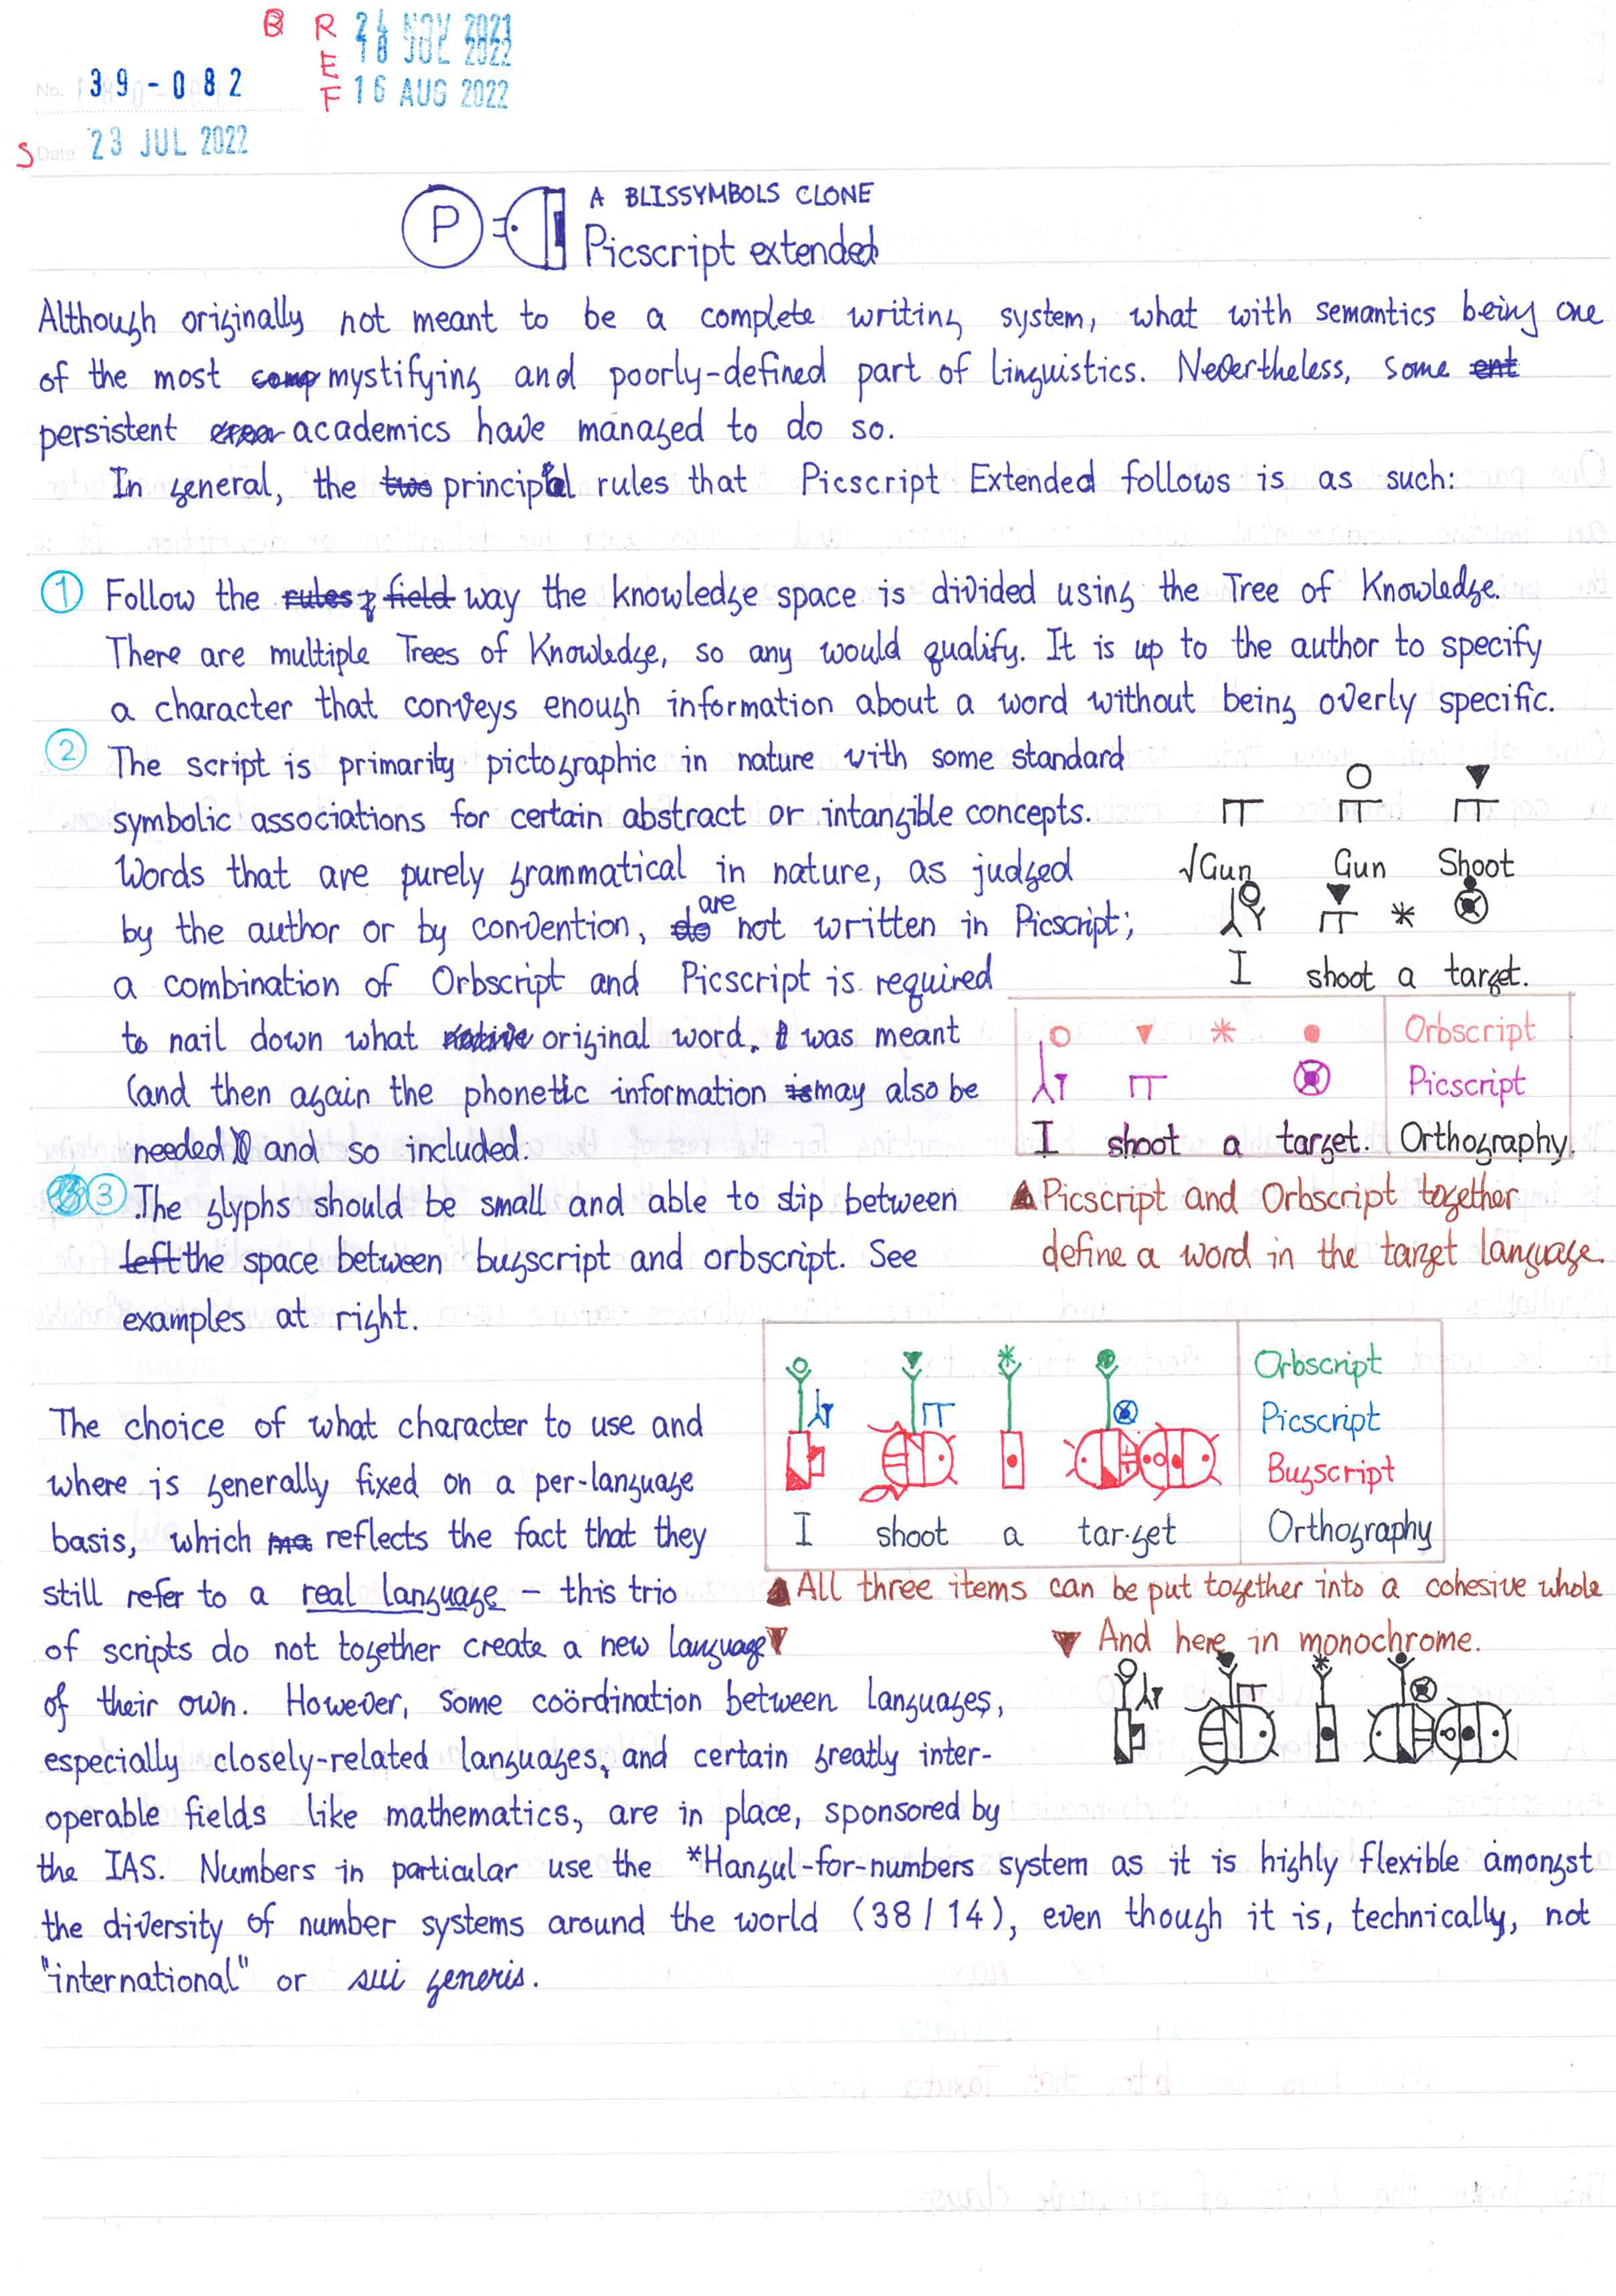 B R 24 NOV 2021
18 JUL 2022
E
F 16 AUG 2022
No. 39-082
S Date 23 JUL 2022
P A BLISSYMBOLS CLONE
Picscript extended
Although originally not meant to be a complete writing system, what with semantics being one
of the most comp mystifying and poorly-defined part of linguistics. Nevertheless, some ent
persistent academics have managed to do so.
In general, the two principal rules that Picscript Extended follows is as such:
① Follow the rules field way the knowledge space is divided using the Tree of Knowledge.
There are multiple Trees of Knowledge, so any would qualify. It is up to the author to specify
a character that conveys enough information about a word without being overly specific.
② The script is primarity pictographic in nature with some standard
symbolic associations for certain abstract or intangible concepts.
Words that are purely grammatical in nature, as judged
by the author or by convention, do are not written in Picscript;
a combination of Orbscript and Picscript is required
to nail down what native original word. was meant
(and then again the phonetic information is may also be
needed) and so included.
√Gun Gun Shoot
I shoot a target.
Orbscript
Picscript
I shoot a target. Orthography.
▲ Picscript and Orbscript together
define a word in the target language.
③ The glyphs should be small and able to slip between
left the space between bugscript and orbscript. See
examples at right.
Orbscript
Picscript
Bugscript
I shoot a tar·get Orthography
▲ All three items can be put together into a cohesive whole
▼ And here in monochrome.
The choice of what character to use and
where is generally fixed on a per-language
basis, which ma reflects the fact that they
still refer to a real language – this trio
of scripts do not together create a new language
of their own. However, some coördination between languages,
especially closely-related languages, and certain greatly inter-
operable fields like mathematics, are in place, sponsored by
the IAS. Numbers in particular use the *Hangul-for-numbers system as it is highly flexible amongst
the diversity of number systems around the world (38/14), even though it is, technically, not
"international" or sui generis.